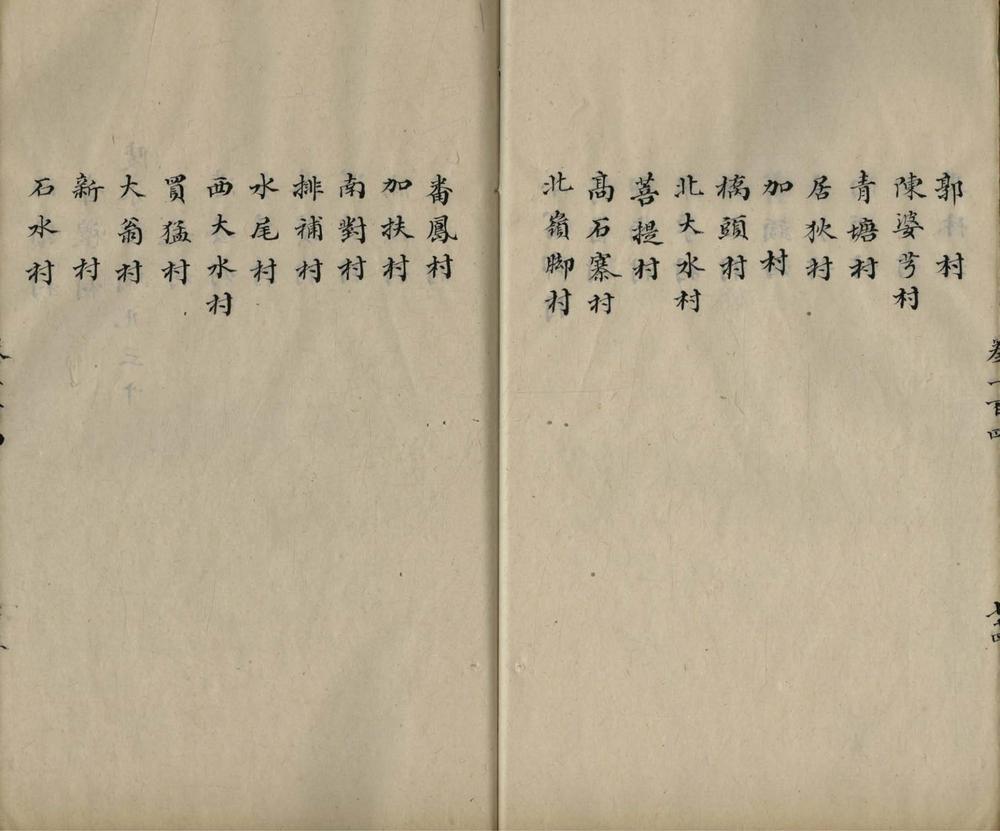 郭村
陳婆芍村
青塘村
居狄村
加村
橋頭村
北大水村
菩提村
高石寨村
北嶺脚村
番鳳村
加扶村
南對村
排補村
水尾村
西大水村
買猛村
大翁村
新村
石水村
卷一百四